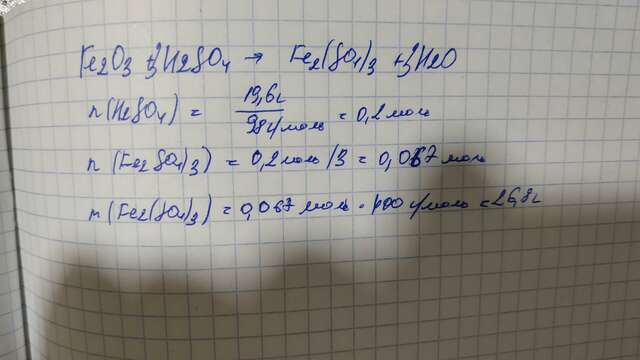 Fe2O3 + 3H2SO4 → Fe2(SO4)3 + 3H2O
n(H2SO4) = 19,6г / 98г/моль = 0,2 моль
n(Fe2(SO4)3) = 0,2 моль /3 = 0,067 моль
m(Fe2(SO4)3) = 0,067 моль · 400 г/моль = 26,8г